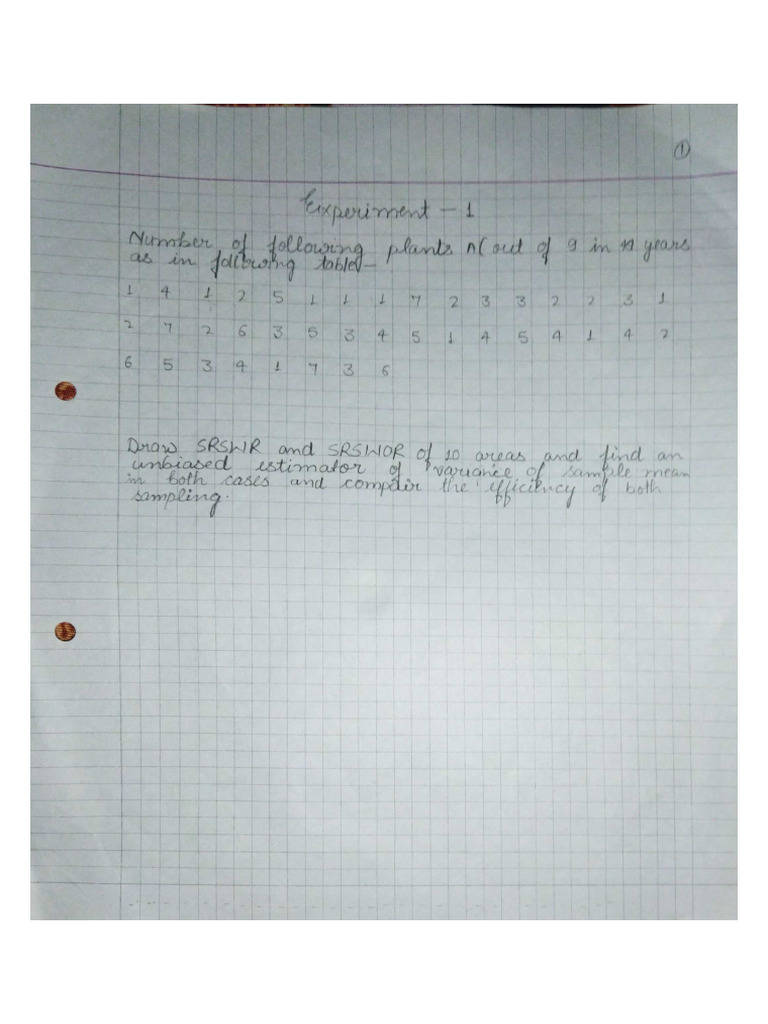 ①
Experiment - 1
Number of following plants n( out of 9 in years
as in following table-
1 4 1 2 5 1 1 1 7 2 3 3 2 2 3 1
2 7 2 6 3 5 3 4 5 1 4 5 4 1 4 2
6 5 3 4 1 7 3 6
Draw SRSWR and SRSWOR of 10 areas and find an
unbiased estimator of variance of sample mean
in both cases and compair the efficiency of both
sampling.